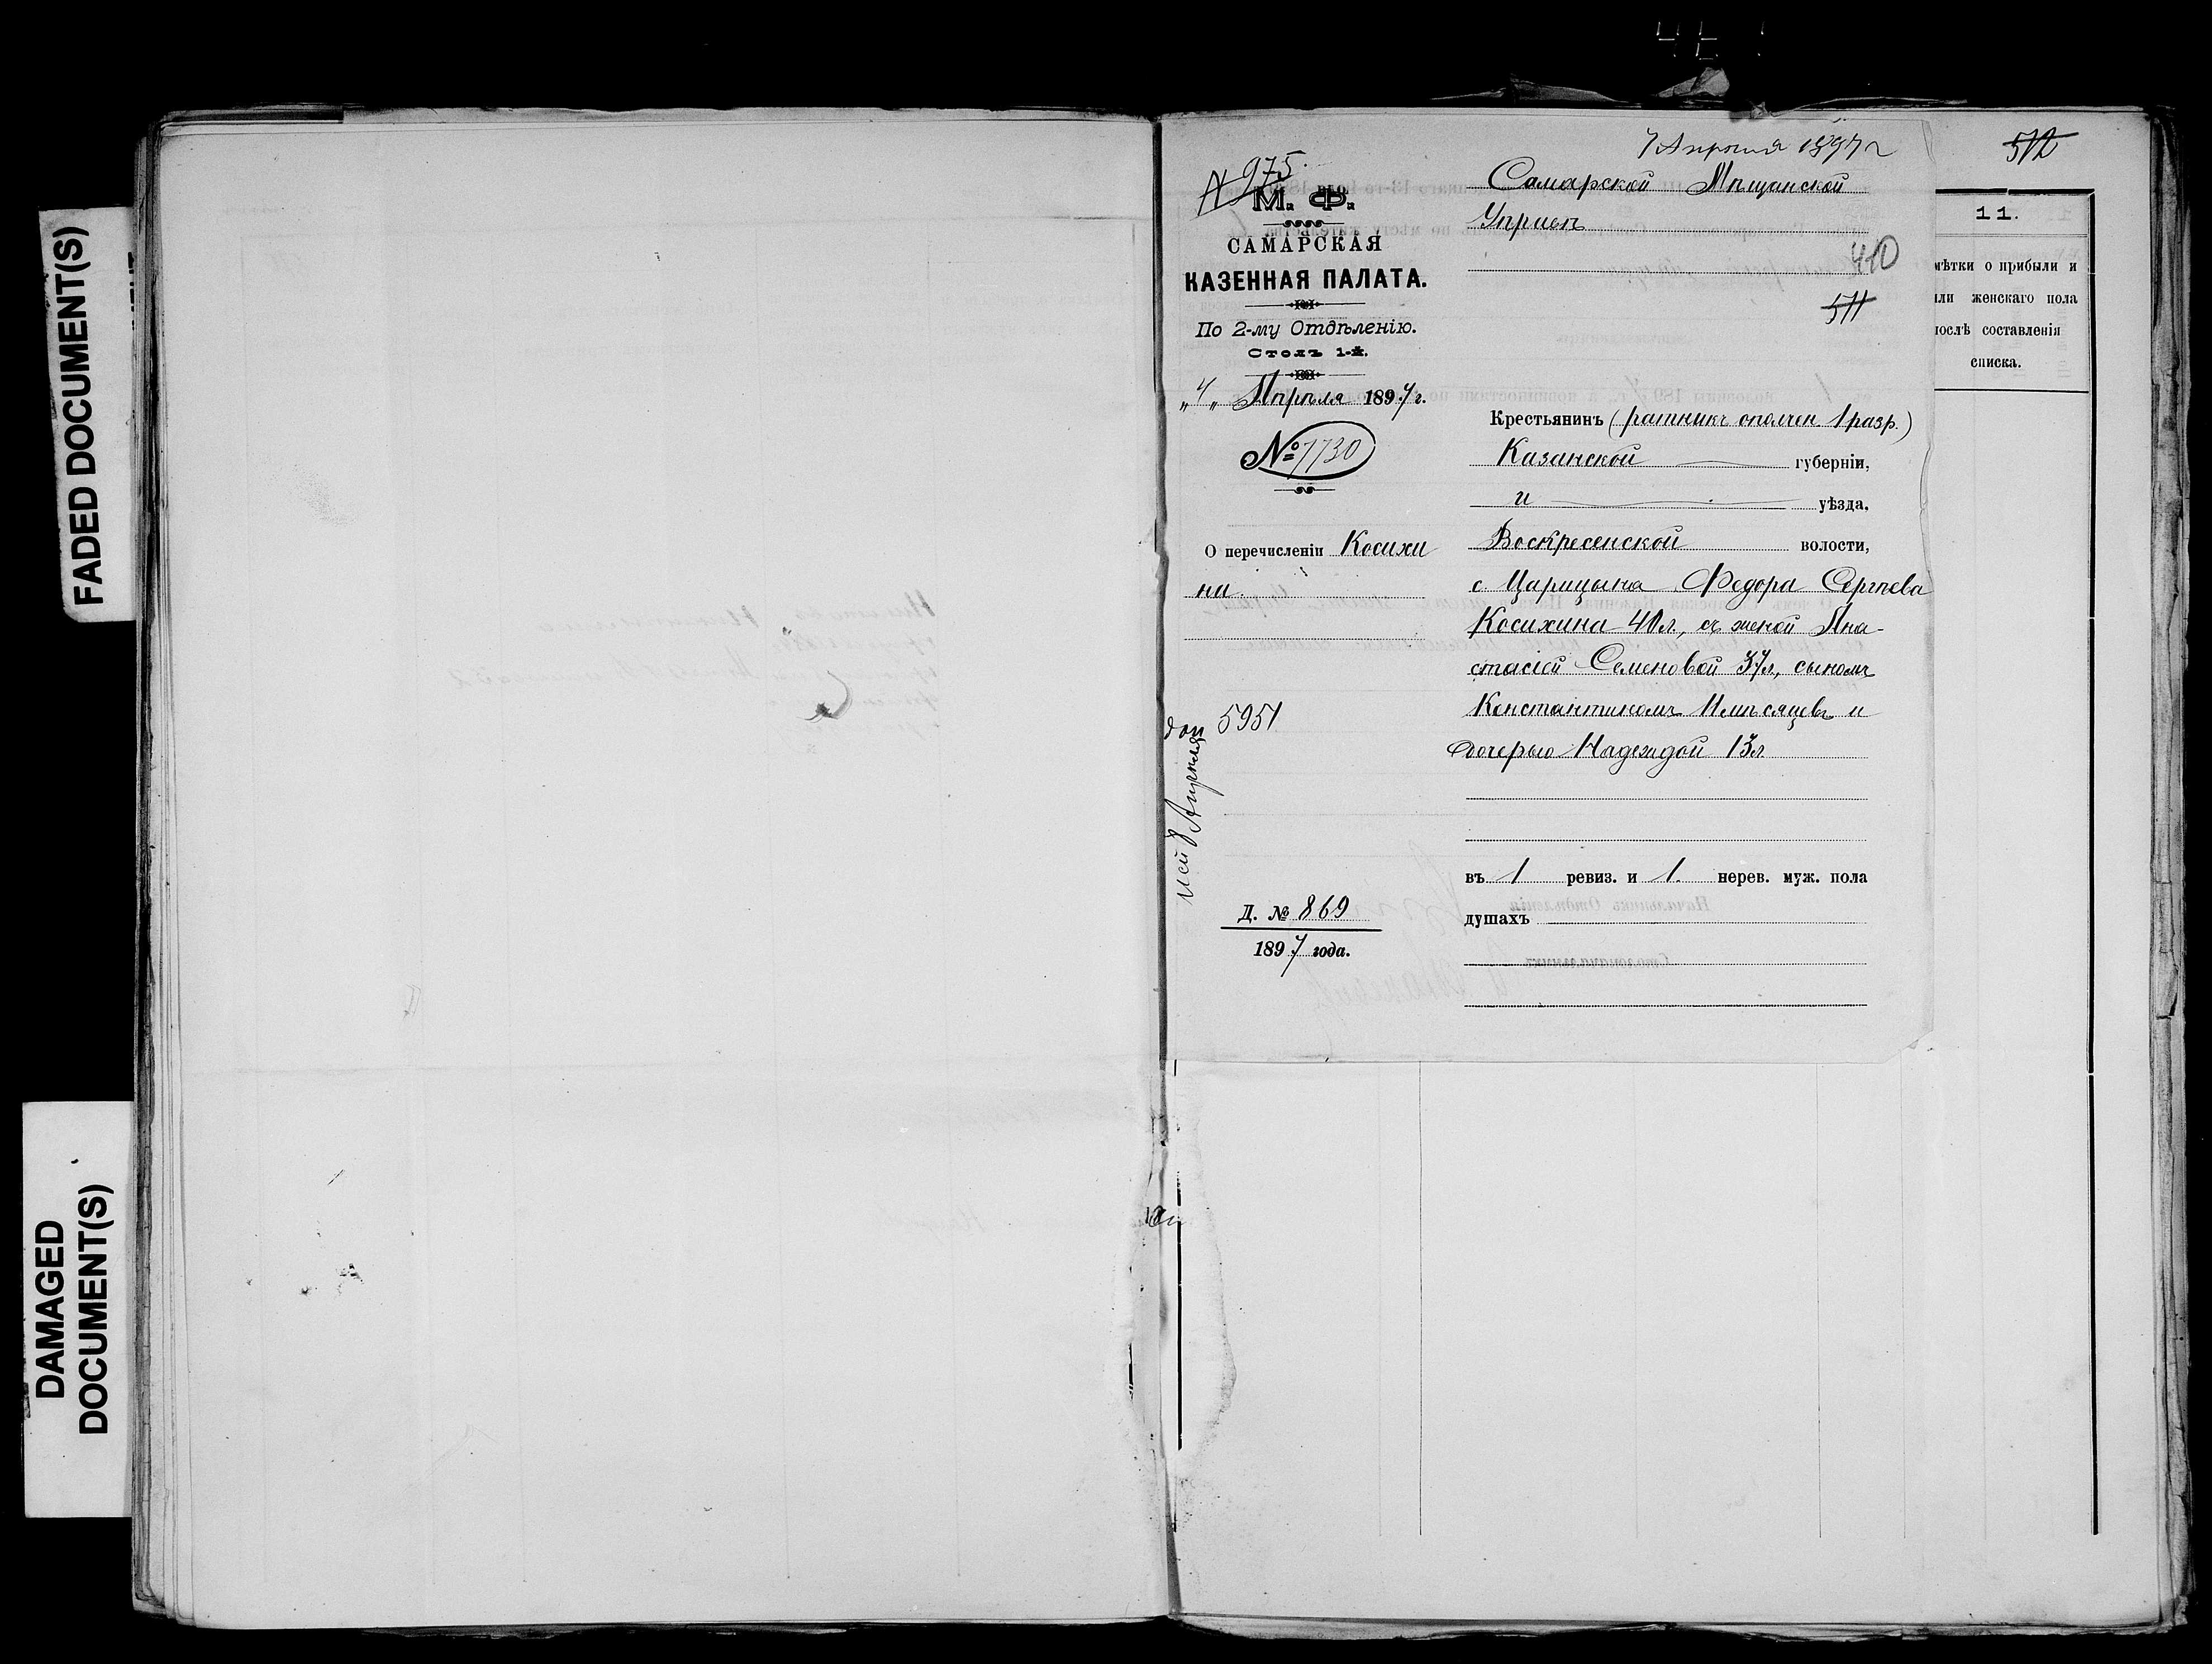 FADED DOCUMENT(S)
DAMAGED
DOCUMENT(S)
7 Апреля 1897 г
512
N 975.
М. Ф.
САМАРСКАЯ
КАЗЕННАЯ ПАЛАТА.
По 2-му Отдѣленію.
Столъ 1-й.
„4„ Апрѣля 1897 г.
№ 7730
О перечисленіи Косихи
на
5951
Д. № 869
1897 года.
Самарской Мѣщанской
Управѣ
410
511
Крестьянинъ (ратникъ ополчен. 1 разр.)
Казанской губерніи,
и уѣзда,
Воскресенской волости,
с. Царицына Федора Сергѣева
Косихина 40 л., съ женой Ана-
стасіей Семеновой 37 л., сыномъ
Константиномъ 11 мѣсяцевъ и
дочерью Надеждой 13 л.
въ 1 ревиз. и 1. нерев. муж. пола
душахъ
11.
мѣтки о прибыли и
или женскаго пола
послѣ составленія
списка.